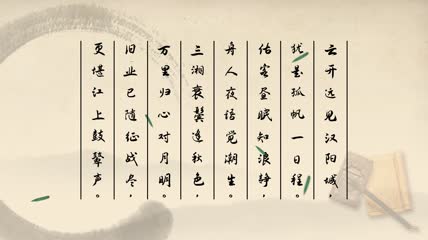 云开远见汉阳城，
犹是孤帆一日程。
估客昼眠知浪静，
舟人夜语觉潮生。
三湘衰鬓逢秋色，
万里归心对月明。
旧业已随征战尽，
更堪江上鼓鼙声。